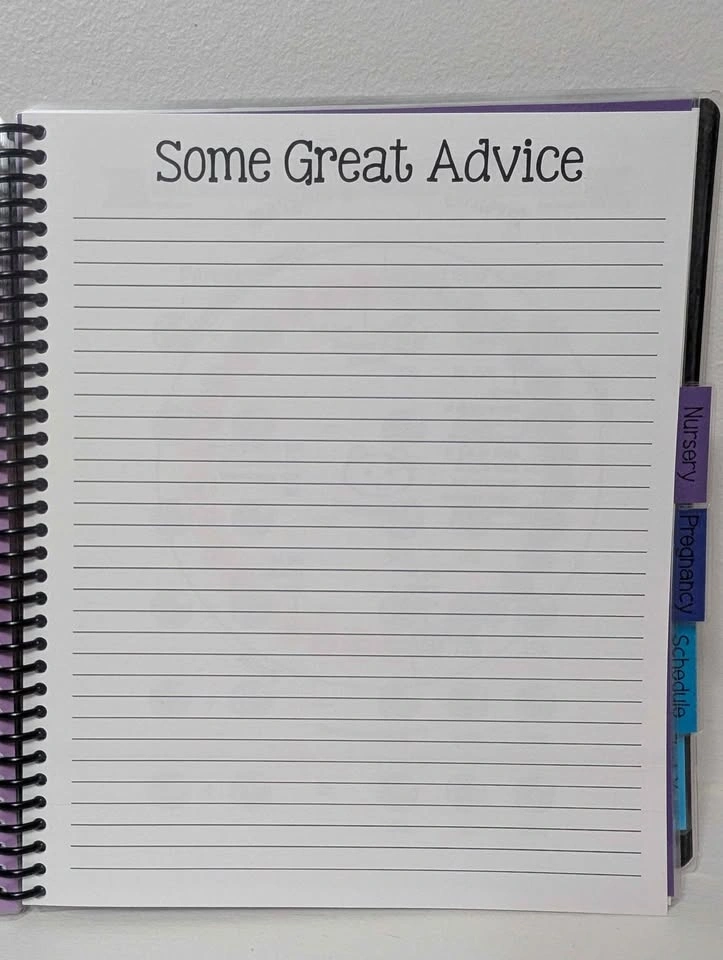 Some Great Advice
Nursery
Pregnancy
Schedule